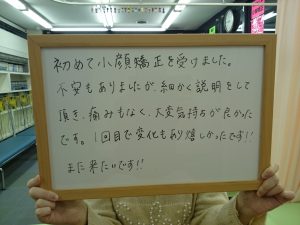 初めて小顔矯正を受けました。
不安もありましたが、細かく説明をして
頂き、痛みもなく、大変気持ちが良かった
です。1回目で変化もあり嬉しかったです!!
また来たいです!!